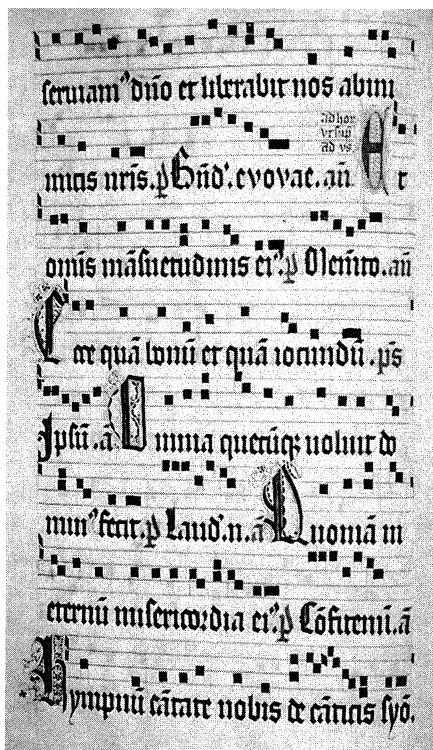 seruiam⁹ dño et liberabit nos ab ini
ad hor
vt sup
ad vs.
micis nr̄is. p̄ Bñd'. evovae. añ Et
om̄is mãsuetudinis ei⁹. p̄ Memto. añ
Ecce quã bonũ et quã iocundũ. p̄s
Ipsũ. ã Omnia quecũq; uoluit do
min⁹ fecit. p̄ Laud'. n. ã Quoniã in
eternũ misericordia ei⁹. p̄ Cõfitemĩ. ã
Hympnũ cãtate nobis de cãticis syõ.